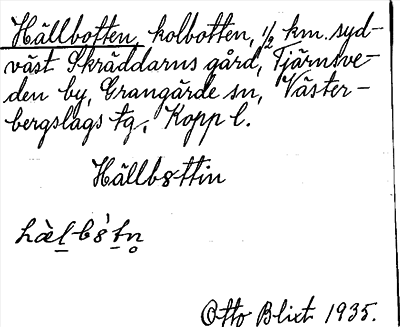 Hällbotten, kolbotten, 1/2 km. syd-
väst Skräddarns gård, Tjärnsve-
den by, Grangärde sn, Väster-
bergslags tg. Kopp l.
Hällbottin
Otto Blixt 1935.